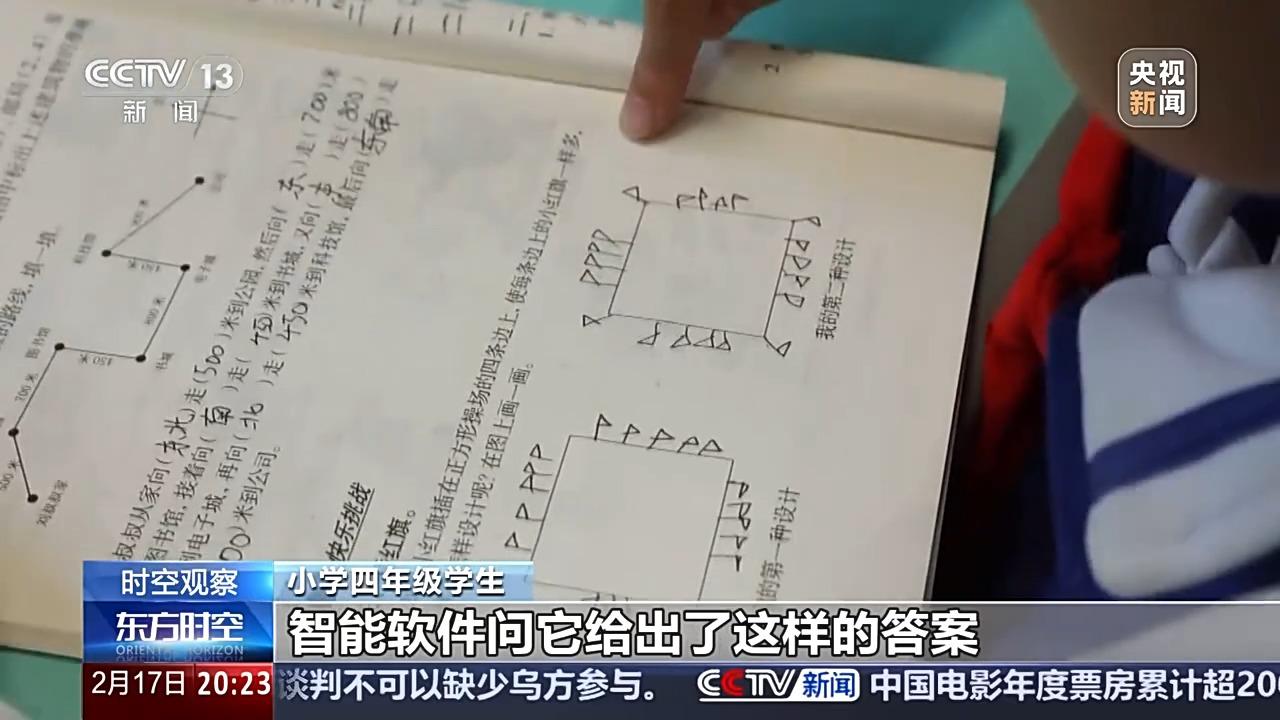 CCTV 13
新闻
央视
新闻
叔叔从家向(东北)走(500)米到公园,然后向(东)走(700)米
图书馆,接着向(南)走(450)米到书城,又向(东)走(800)
到电子城,再向(北)走(450)米到科技馆,最后向(东南)走
00)米到公司。
图书馆
电子城
书城
700米
450米
快乐挑战
红旗。
小红旗插在正方形操场的四条边上,使每条边上的小红旗一样多,
样设计呢?在图上画一画。
的第一种设计
我的第二种设计
时空观察
小学四年级学生
东方时空
ORIENTAL HORIZON
智能软件问它给出了这样的答案
2月17日 20:23
谈判不可以缺少乌方参与。 CCTV新闻 中国电影年度票房累计超200